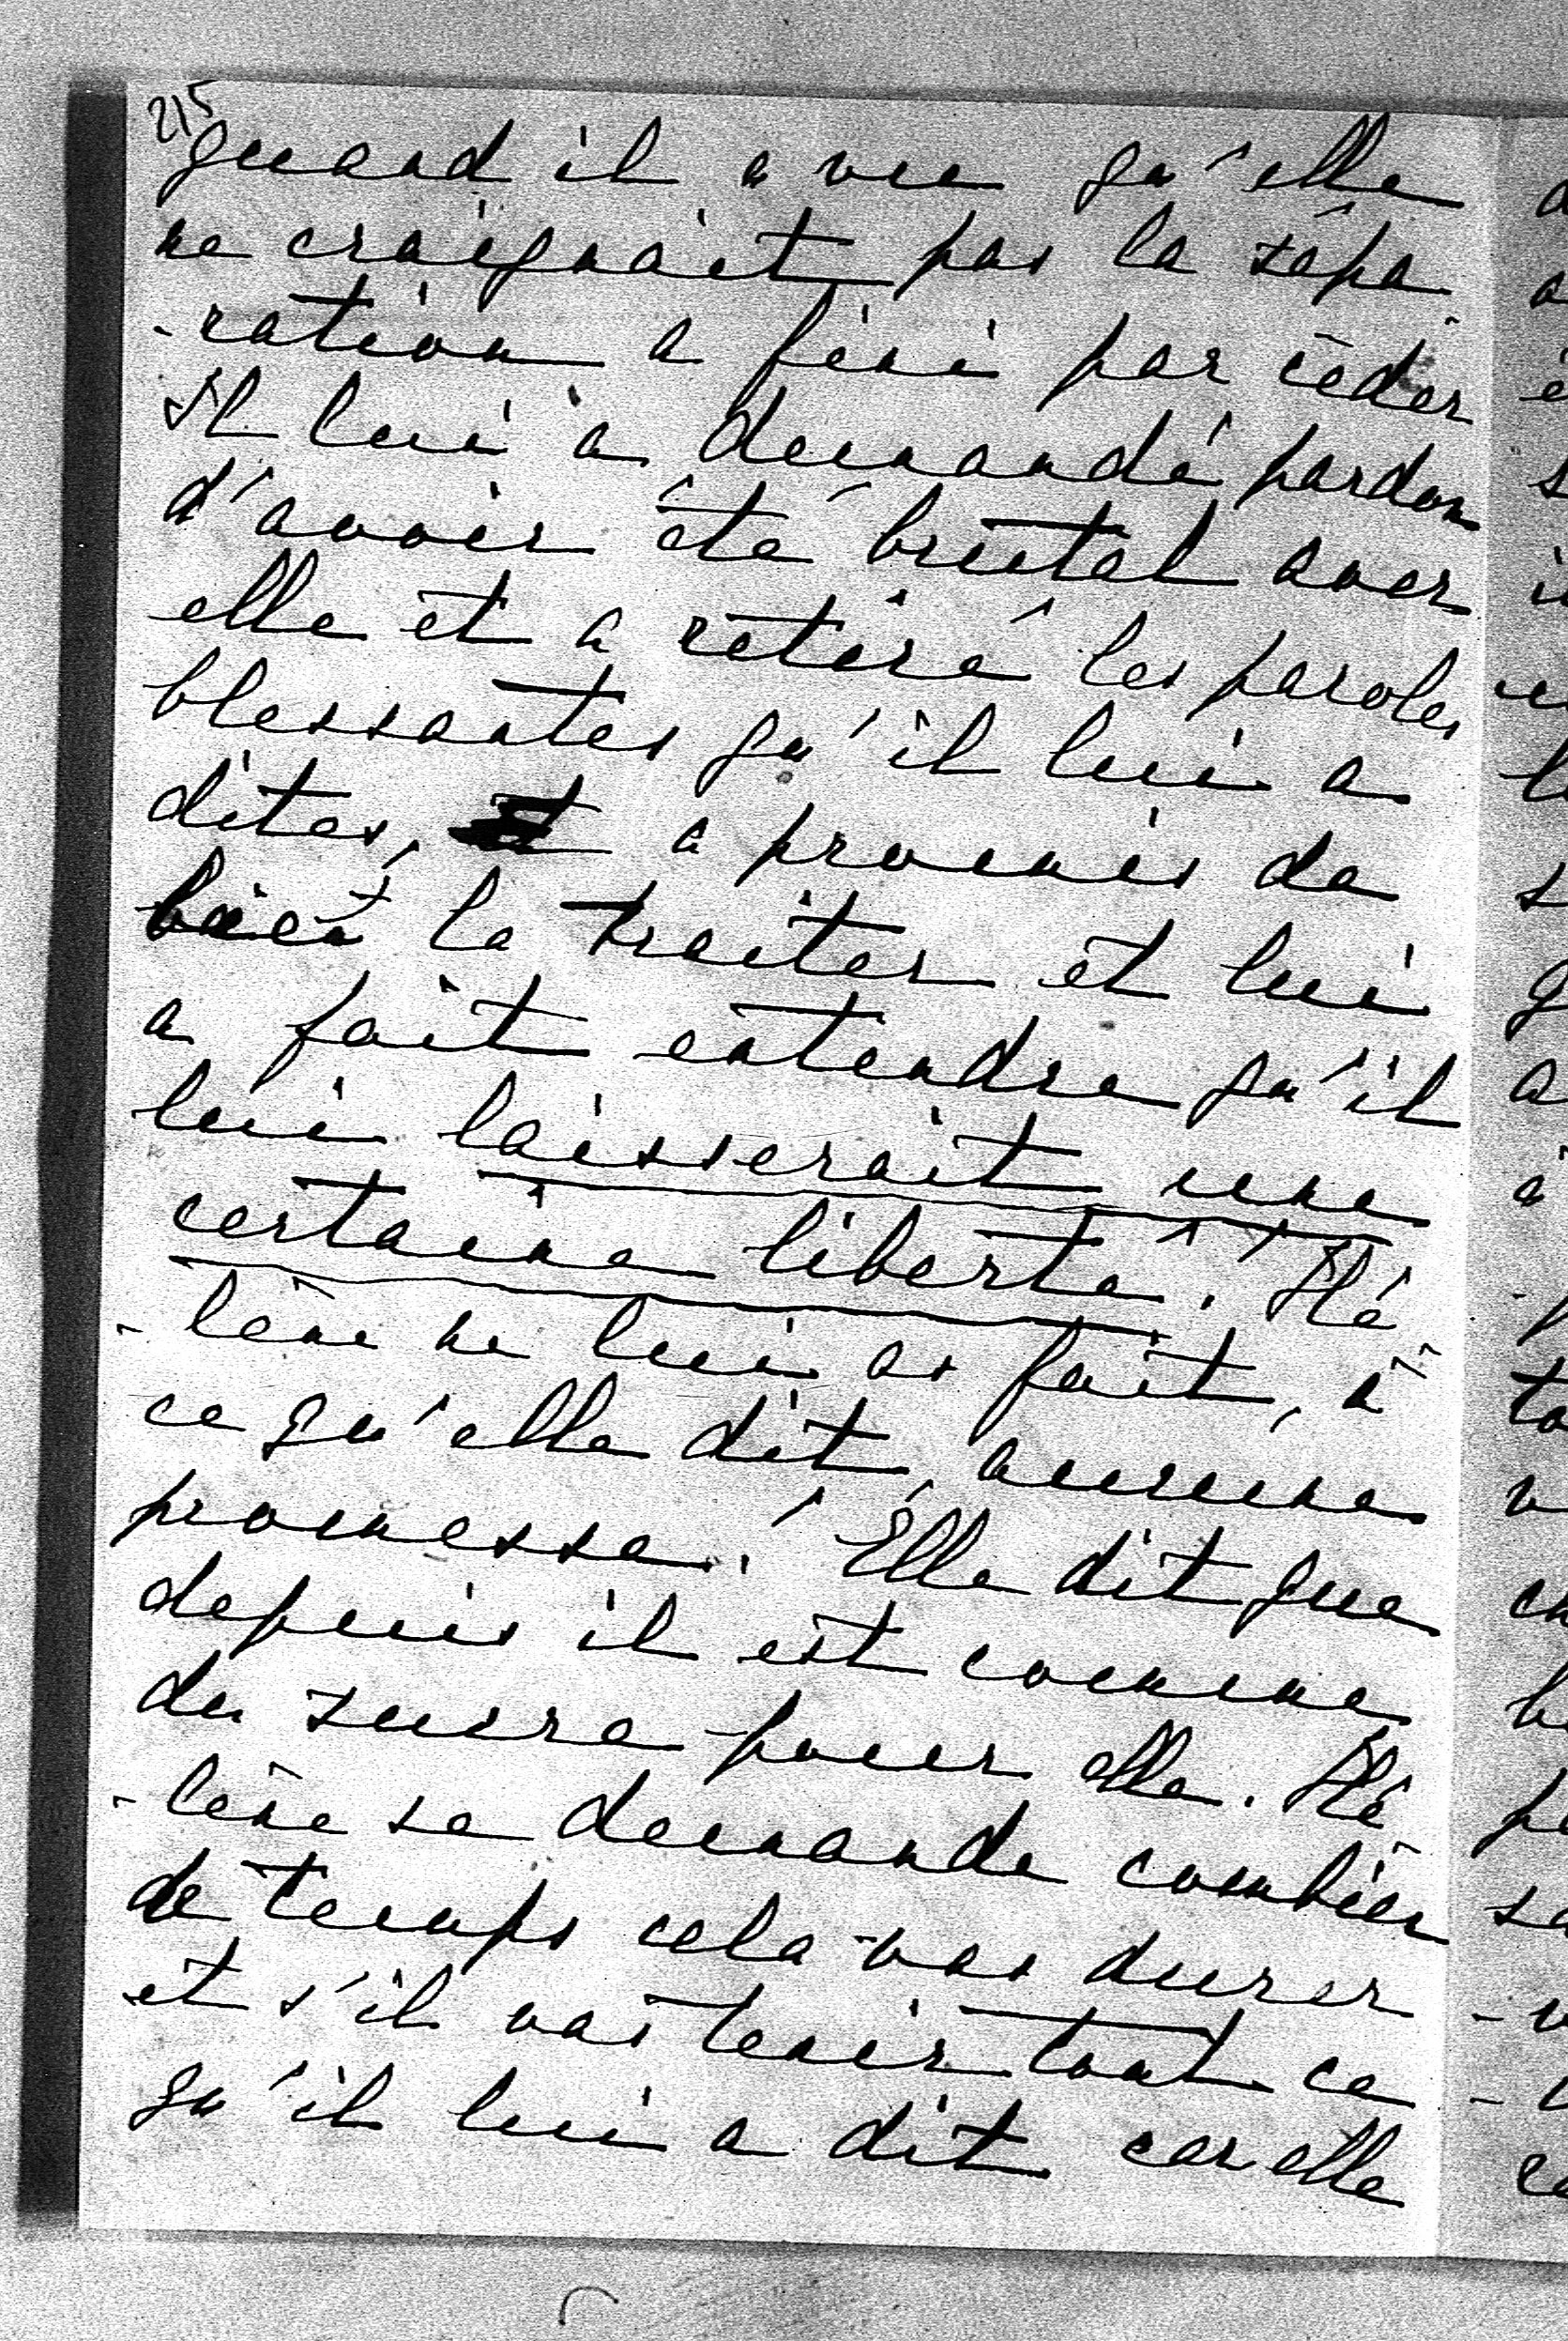 215
quand il a vu qu'elle
ne craignait pas la sépa-
-ration a fini par céder
Il lui a demandé pardon
d'avoir été brutal avec
elle et a retiré les paroles
blessantes qu'il lui a
dites, et a promis de
bien la traiter et lui
a fait entendre qu'il
lui laisserait une
certaine liberté. Hé-
-lène ne lui as fait, à
ce qu'elle dit, aucune
promesse. Elle dit que
depuis il est comme
du sucre pour elle. Hé-
-lène se demande combien
de temps cela vas durer
et s'il vas tenir tout ce
qu'il lui a dit car elle